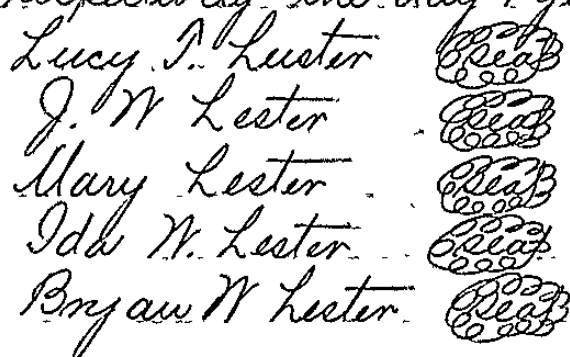 the day
Lucy T. Luster (Seal)
J. W Lester (Seal)
Mary Lester (Seal)
Ida W. Lester (Seal)
Bryan W Lester (Seal)